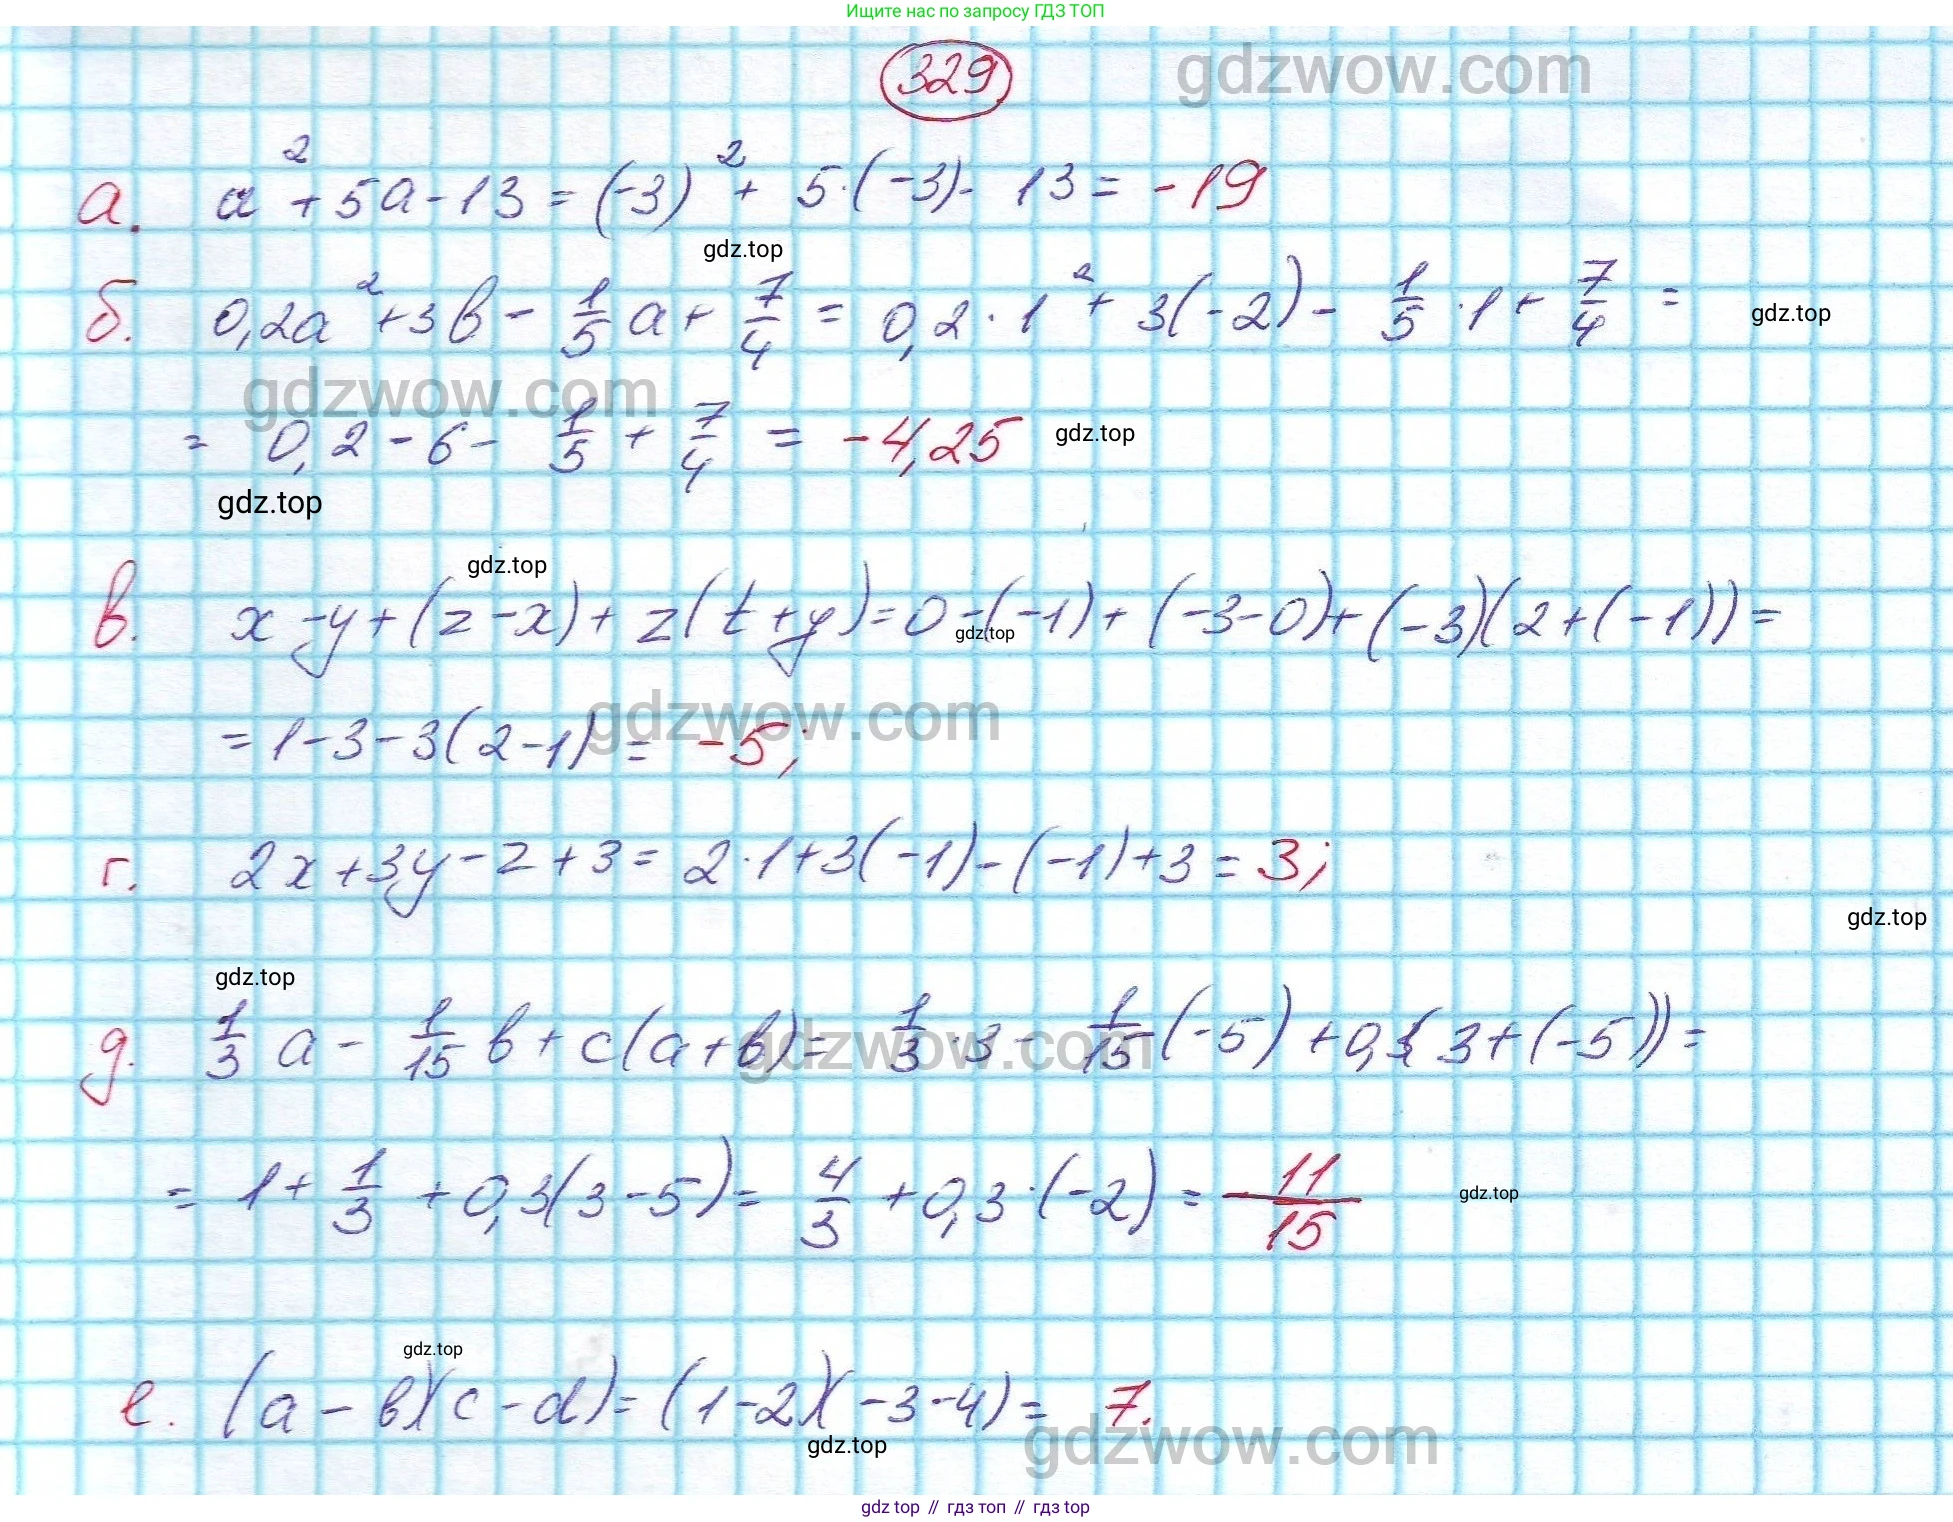 Ищите нас по запросу ГДЗ ТОП
329
gdzwow.com
а. a² + 5a - 13 = (-3)² + 5·(-3) - 13 = -19
gdz.top
б. 0,2a² + 3b - 1/5 a + 7/4 = 0,2 · 1² + 3(-2) - 1/5 · 1 + 7/4 =
gdz.top
gdzwow.com
= 0,2 - 6 - 1/5 + 7/4 = -4,25
gdz.top
gdz.top
gdz.top
в. x - y + (z - x) + z(t + y) = 0 - (-1) + (-3 - 0) + (-3)(2 + (-1)) =
gdz.top
gdzwow.com
= 1 - 3 - 3(2 - 1) = -5;
г. 2x + 3y - z + 3 = 2 · 1 + 3(-1) - (-1) + 3 = 3;
gdz.top
gdz.top
д. 1/3 a - 1/15 b + c(a + b) = 1/3 · 3 - 1/15 (-5) + 0,3(3 + (-5)) =
gdzwow.com
= 1 + 1/3 + 0,3(3 - 5) = 4/3 + 0,3 · (-2) = - 11/15
gdz.top
gdz.top
е. (a - b)(c - d) = (1 - 2)(-3 - 4) = 7.
gdz.top
gdzwow.com
gdz top // гдз топ // гдз top